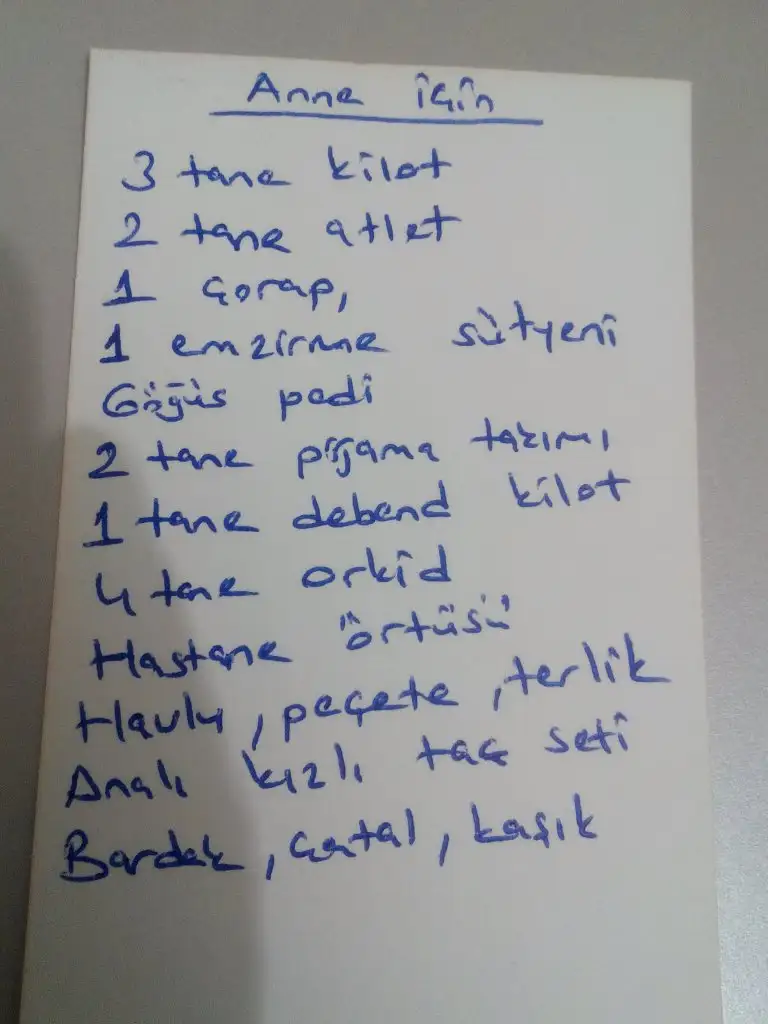 Anne için
3 tane kilot
2 tane atlet
1 çorap,
1 emzirme sütyeni
Göğüs pedi
2 tane pijama takımı
1 tane deband kilot
4 tane orkid
Hastane örtüsü
Havlu, peçete, terlik
Analı kızlı taç seti
Bardak, çatal, kaşık